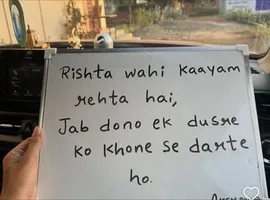 Rishta wahi kaayam
rehta hai,
Jab dono ek dusre
ko khone se darte
ho.